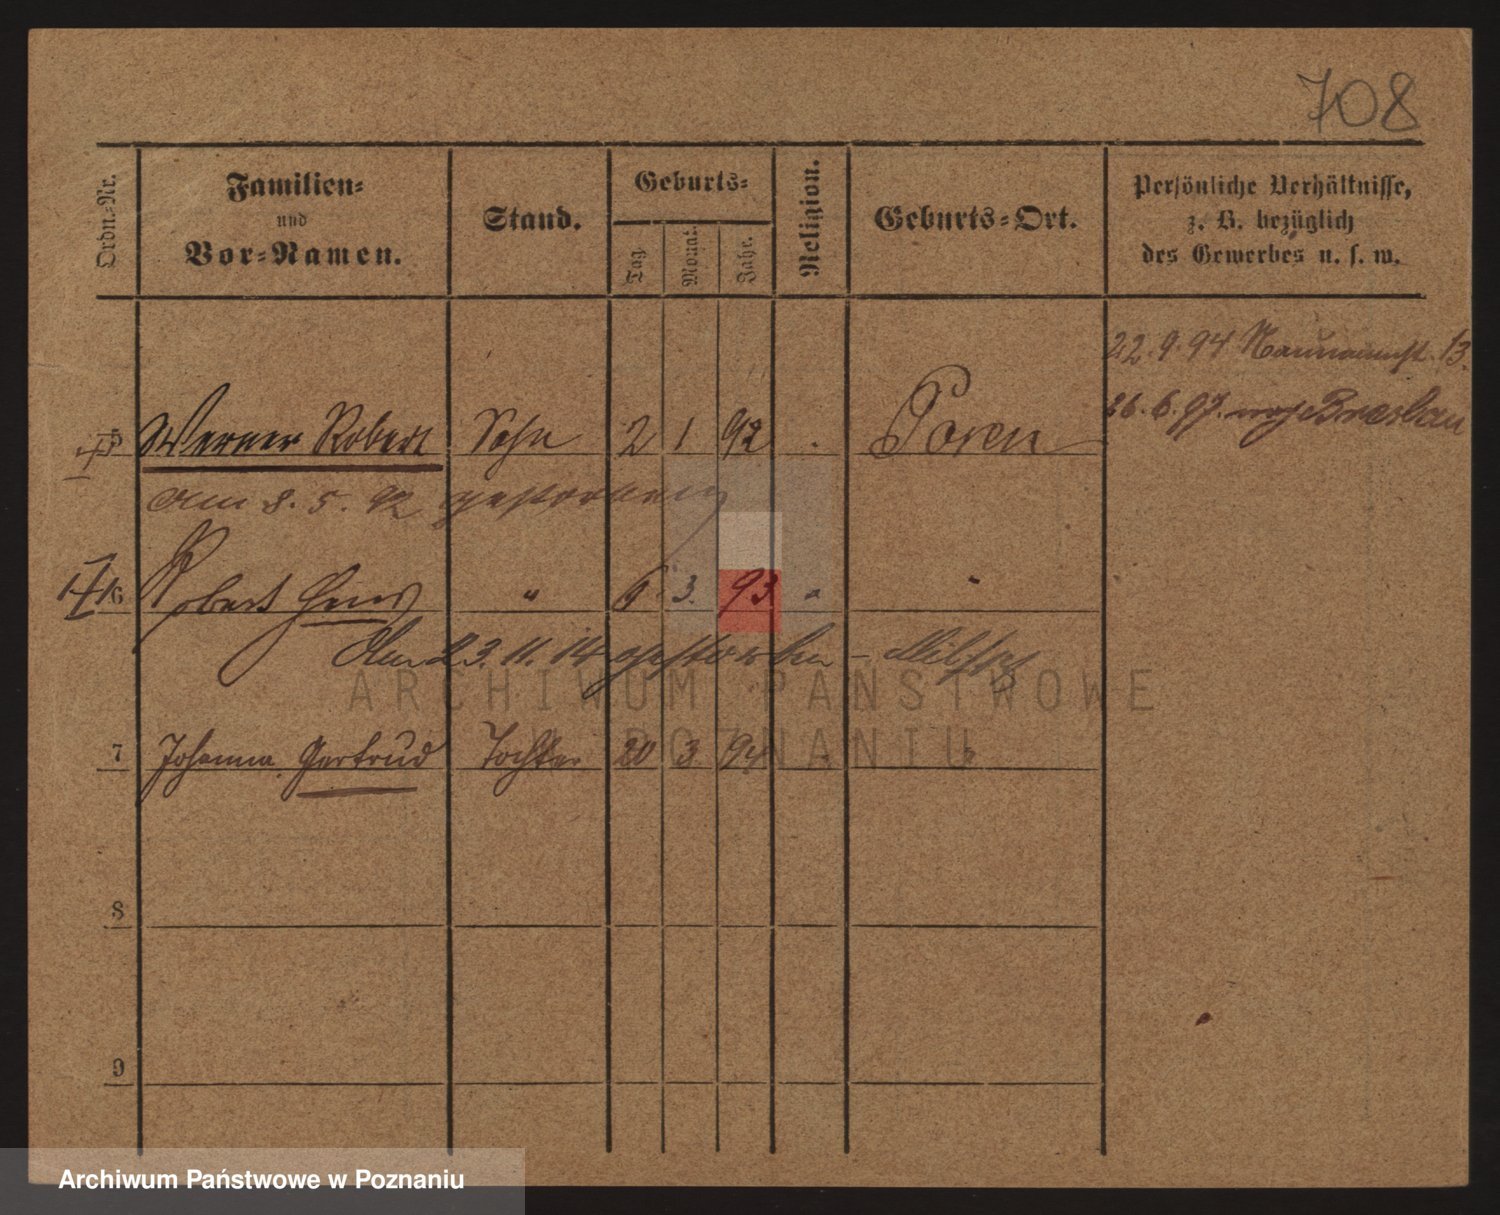 708
Ordn.-Nr.
Familien-
und
Vor-Namen.
Stand.
Geburts-
Tag.
Monat.
Jahr.
Religion.
Geburts-Ort.
Persönliche Verhältnisse,
z. B. bezüglich
des Gewerbes u. s. w.
22.9.94 Naumannst. 13.
26.6.97. nach Breslau
5 Werner Robert Sohn 2 1 92 Posen
am 8.5.92 gestorben
6 Robert Hans " 6 3. 93 " "
gestorben
7 Johanna Gertrud Tochter 20 3 94 "
8
9
ARCHIWUM PAŃSTWOWE
POZNANIU
Archiwum Państwowe w Poznaniu